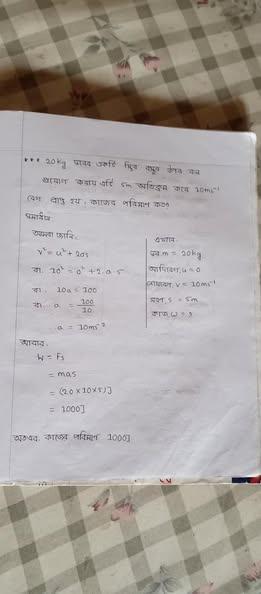 *** 20kg ভরের একটি স্থির বস্তুর উপর বল
প্রয়োগ করায় এটি 5m অতিক্রম করে 10ms⁻¹
বেগ প্রাপ্ত হয়। কাজের পরিমাণ কত?
সমাধান:
আমরা জানি,
v² = u² + 2as
বা, 10² = 0² + 2.a.5
বা, 10a = 100
বা, a = 100/10
a = 10ms⁻²
এখানে,
ভর, m = 20kg
আদিবেগ, u = 0
শেষবেগ, v = 10ms⁻¹
সরণ, s = 5m
কাজ, W = ?
আবার,
W = Fs
= mas
= (20 × 10 × 5) J
= 1000J
অতএব, কাজের পরিমাণ 1000J